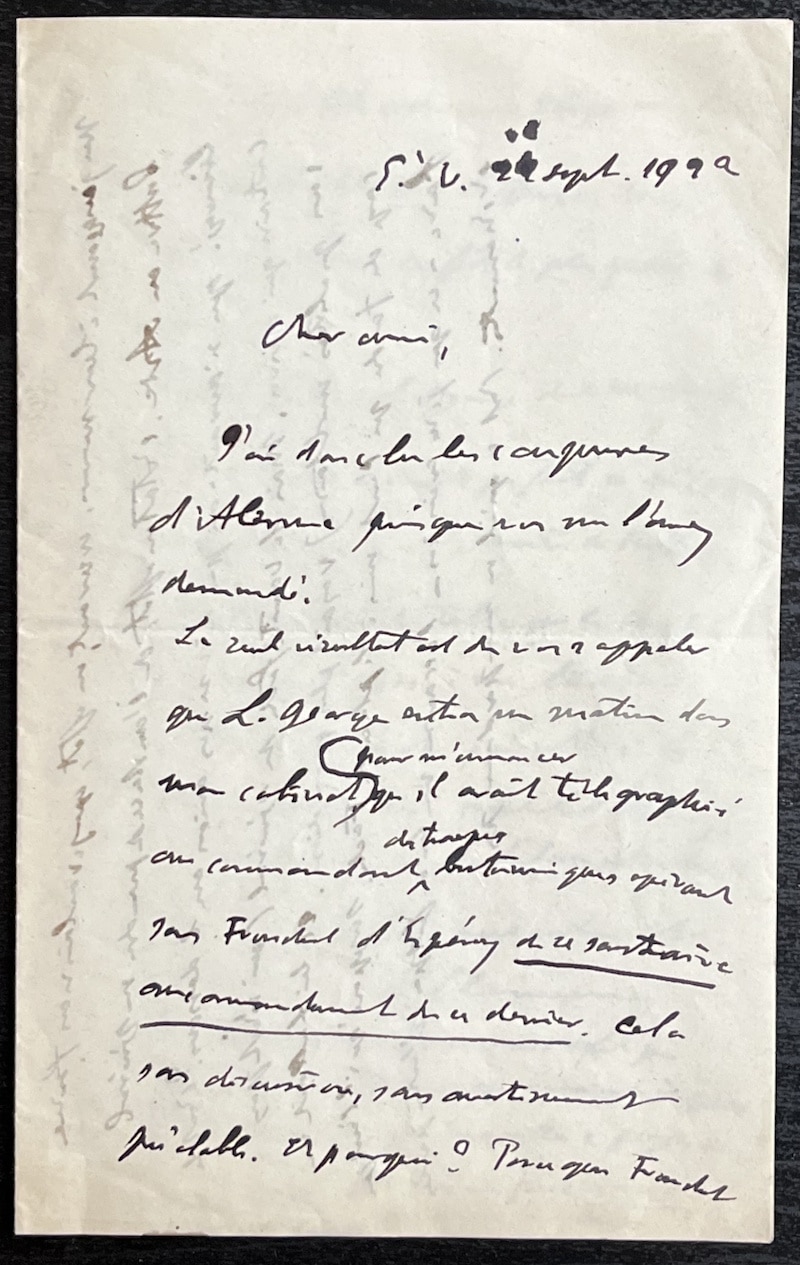 S. V. 22 sept. 1922
Cher ami,
J'ai donc lu les coupures
d'Alerme puisque vous me l'avez
demandé.
Le seul résultat est de vous rappeler
que L. George entra un matin dans
mon cabinet, pour m'annoncer qu'il avait télégraphié
au commandant des troupes britanniques opérant
sous Franchet d'Espérey de se soustraire
au commandement de ce dernier. Cela
sans discussion, sans avertissement
préalable. Et pourquoi? Parce que Franchet